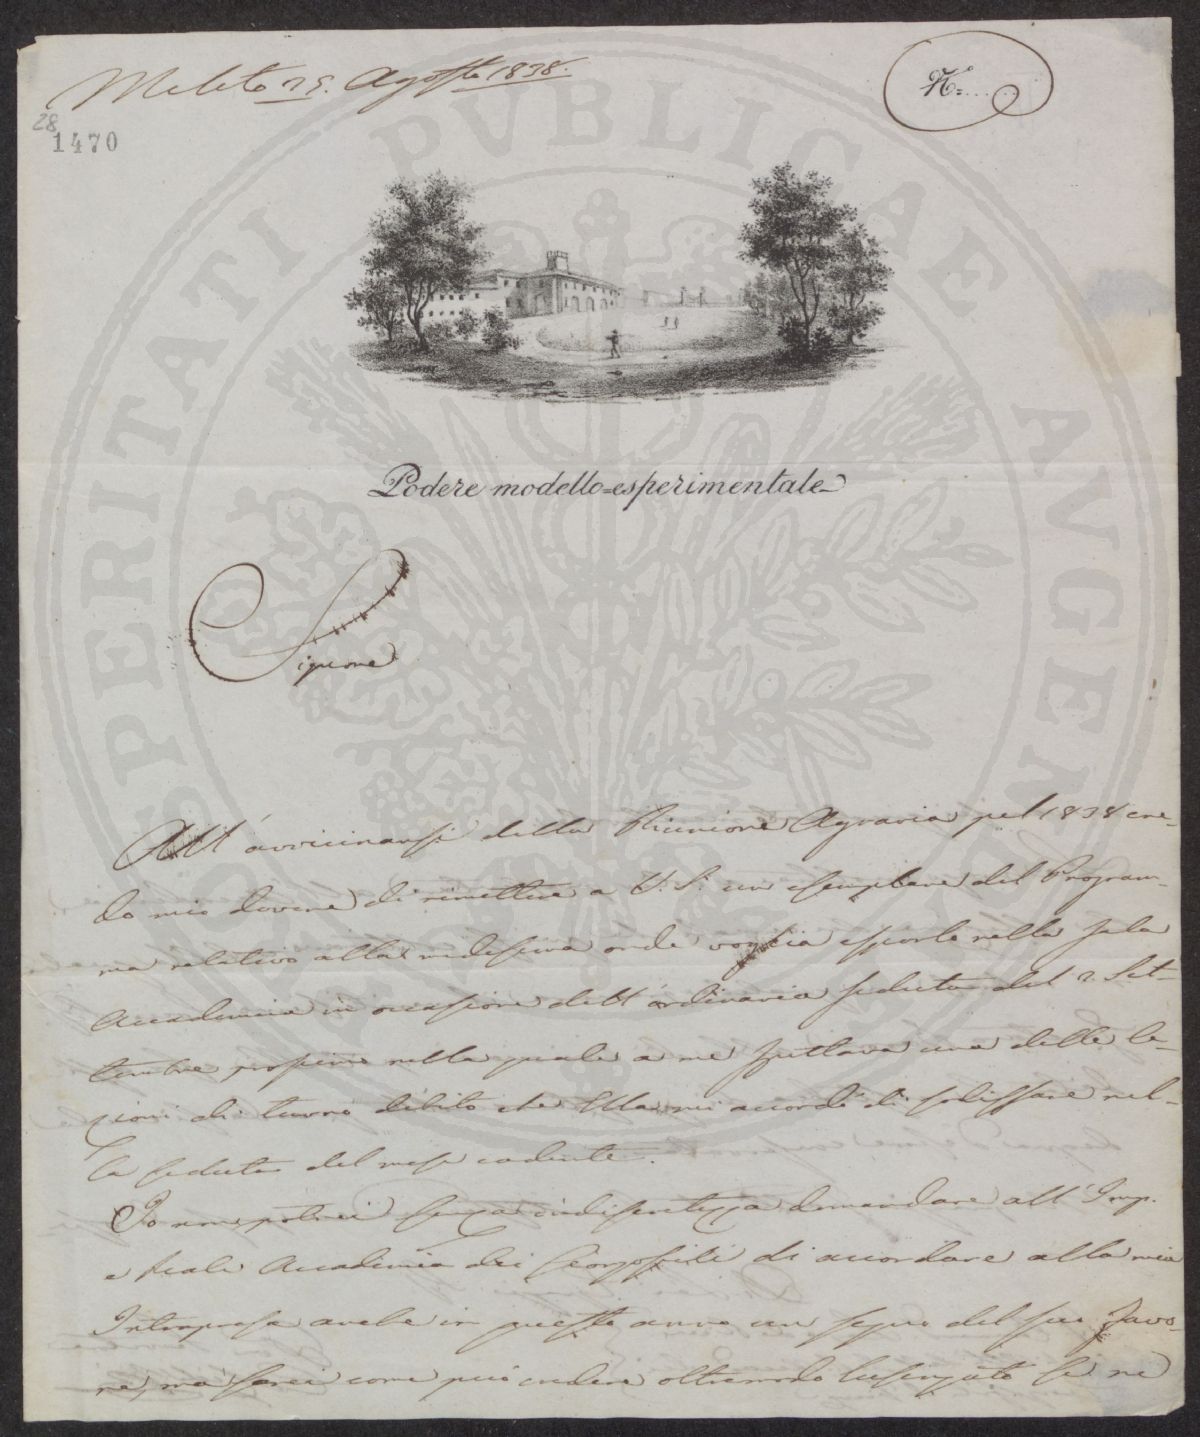 Meleto 25. Agosto 1838.
N.º......
28
1470
PROSPERITATI PVBLICAE AVGENDAE
Podere modello=esperimentale
Signore
All'avvicinarsi della Riunione Agraria pel 1838 cre-
do mio dovere di rimettere a V. S. un esemplare del Program-
ma relativo alla medesima onde voglia esporlo nella Sala
Accademica in occasione dell'ordinaria seduta del 2. Set-
tembre prossimo nella quale a me spettava una delle le-
zioni di turno debito che Ella mi accordò di sodisfare nel-
la seduta del mese cadente.
Io non potrei senza indiscretezza domandare all'Imp.
e Reale Accademia dei Georgofili di accordare alla mia
Intrapresa anche in questo anno un segno del suo favo-
re, ma sarei come può credere oltremodo lusingato se ne